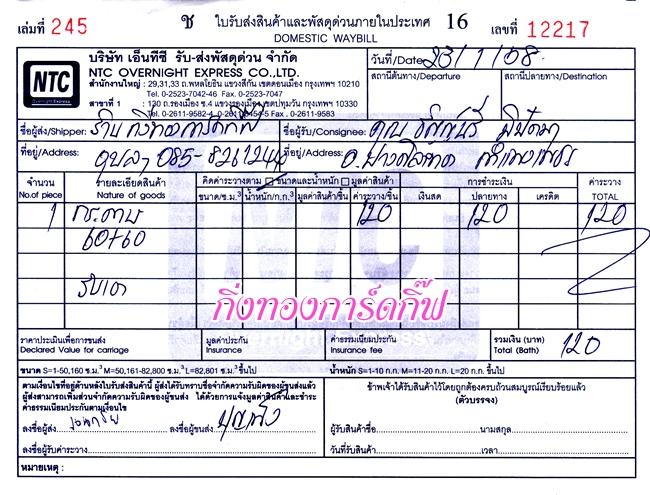 เล่มที่ 245 ช ใบรับส่งสินค้าและพัสดุด่วนภายในประเทศ 16 เลขที่ 12217
DOMESTIC WAYBILL
NTC
Overnight Express
บริษัท เอ็นทีซี รับ-ส่งพัสดุด่วน จำกัด
NTC OVERNIGHT EXPRESS CO.,LTD.
สำนักงานใหญ่ : 29,31,33 ถ.พหลโยธิน แขวงสีกัน เขตดอนเมือง กรุงเทพฯ 10210
Tel. 0-2523-7042-46 Fax. 0-2523-7047
สาขาที่ 1 : 130 ถ.รองเมือง ซ.4 แขวงรองเมือง เขตปทุมวัน กรุงเทพฯ 10330
Tel. 0-2611-9582-4 Fax. 0-2611-9583
วันที่/Date 23/1/08
สถานีต้นทาง/Departure สถานีปลายทาง/Destination
ชื่อผู้ส่ง/Shipper: ร้าน กิ่งทองการ์ดกิ๊ฟ ชื่อผู้รับ/Consignee: คุณ
ที่อยู่/Address: 085-8261244 ที่อยู่/Address:
จำนวน รายละเอียดสินค้า คิดค่าระวางตาม ขนาดและน้ำหนัก มูลค่าสินค้า การชำระเงิน ค่าระวาง
No.of piece Nature of goods ขนาด/ซ.ม.³ น้ำหนัก/ก.ก.³ มูลค่าสินค้า/ชิ้น ค่าระวาง/ชิ้น เงินสด ปลายทาง เครดิต TOTAL
1 กระดาษ 120 120 120
60+60
กิ่งทองการ์ดกิ๊ฟ
ราคาประเมินเพื่อการขนส่ง มูลค่าประกัน ค่าธรรมเนียมประกัน รวมเงิน 120
Declared Value for carriage Insurance Insurance fee Total (Bath)
ขนาด S=1-50,160 ซ.ม.³ M=50,161-82,800 ซ.ม.³ L=82,801 ซ.ม.³ ขึ้นไป น้ำหนัก S=1-10 ก.ก. M=11-20 ก.ก. L=20 ก.ก. ขึ้นไป
ตามเงื่อนไขที่อยู่ด้านหลังใบรับส่งสินค้านี้ ผู้ส่งได้รับทราบข้อจำกัดความรับผิดของผู้ขนส่งแล้ว
ผู้ส่งสามารถเพิ่มส่วนจำกัดความรับผิดของผู้ขนส่ง ได้ด้วยการแจ้งมูลค่าสินค้าและชำระ
ค่าธรรมเนียมประกันตามเงื่อนไข
ลงชื่อผู้ส่ง ลงชื่อผู้ขนส่ง
ลงชื่อผู้รับค่าระวาง
ข้าพเจ้าได้รับสินค้าไว้โดยถูกต้องครบถ้วนสมบูรณ์เรียบร้อยแล้ว
(ตัวบรรจง)
ผู้รับสินค้าชื่อ นามสกุล
วันที่รับสินค้า เวลา
หมายเหตุ :